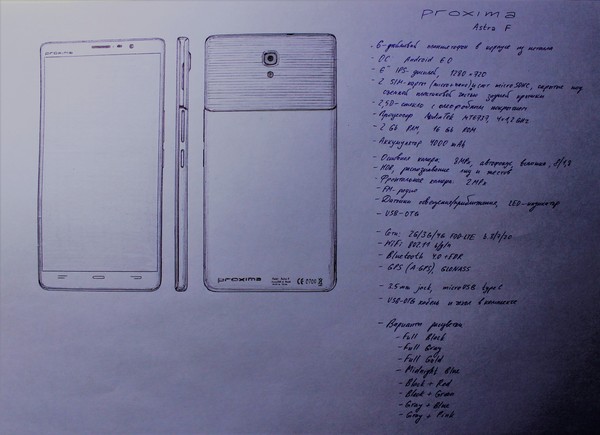 proxima
Astro F
proxima
- 6-дюймовый смартфон в корпусе из металла
- ОС Android 6.0
- 6" IPS-дисплей, 1280*720
- 2 SIM-карты microSDHC, скрытые под
съемной частью задней крышки
- 2,5D-стекло с олеофобным покрытием
- Процессор MediaTek MT6737, 4x1,2 GHz
- 2 Gb RAM, 16 Gb ROM
- Аккумулятор 4000 mAh
- Основная камера: 8MPx, автофокус, вспышка,
- HDR, распознавание лиц и жестов
- Фронтальная камера: 2MPx
- FM-радио
- Датчики освещения/приближения, LED-индикатор
- USB-OTG
- Сети: 2G/3G/4G FDD-LTE b.3/7/20
- WiFi 802.11 b/g/n
- Bluetooth 4.0 + EDR
- GPS (A-GPS), GLONASS
- 3.5 mm jack, microUSB type C
- USB-OTG кабель и чехол в комплекте
- Варианты расцветки
- Full Black
- Full Gray
- Full Gold
- Midnight Blue
- Black + Red
- Black + Green
- Gray + Blue
- Gray + Pink
proxima
CE 0700